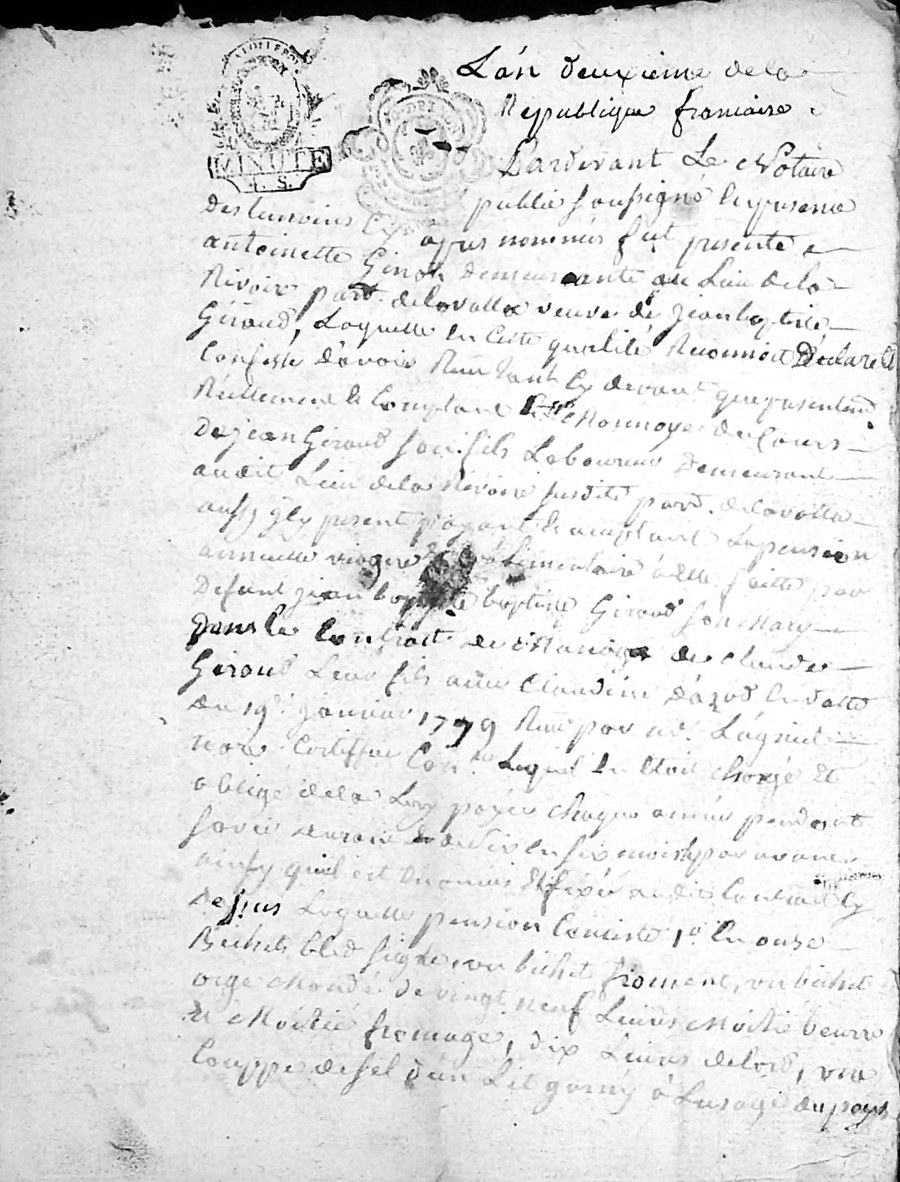 MINUTE
L'an deuxieme de la
Republique francaise .
Pardevant Le Notaire
public soussigné En presence
Des temoins Cy apres nommés fut presente
antoinette Ginot Demeurante au Lieu de la
Rivoire parr. delavalla veuve de jean baptiste
Géraud, Laquelle En Cette qualité Reconnoit Déclare Et
Confesse D'avoir Reçu tant Cy devant que presentem.
Réellement Et Comptant En Monnoye du Cours
De jean Géraud son fils Laboureur Demeurant
audit Lieu dela Rivoire susdite parr. delavalla
aussy Icy present payant Et acceptant La pension
annuelle viagere alimentaire à Elle faitte par
Defunt jean baptiste Géraud son Mary
Dans le Contrat de Mariage de Claude
Géraud Leur fils avec Claudine D'azod En datte
du 19e. janvier 1779 Reçu par me.
nore. Lequel En Etoit chargé Et
obligé de la Luy payer chaque année pendant
sa vie de six En six mois par avance
ainsy qu'il est Enoncé Et fixé audit Contrat Cy
Dessus Laquelle pension Consiste 1° En onze
Bichets bled seigle, un bichet froment, un bichet
orge Mondé De vingt neuf Livres Moitié beurre
Et Moitié fromage, dix Livres de lard, une
Couppe de sel D'un Lit garny à L'usage du pays